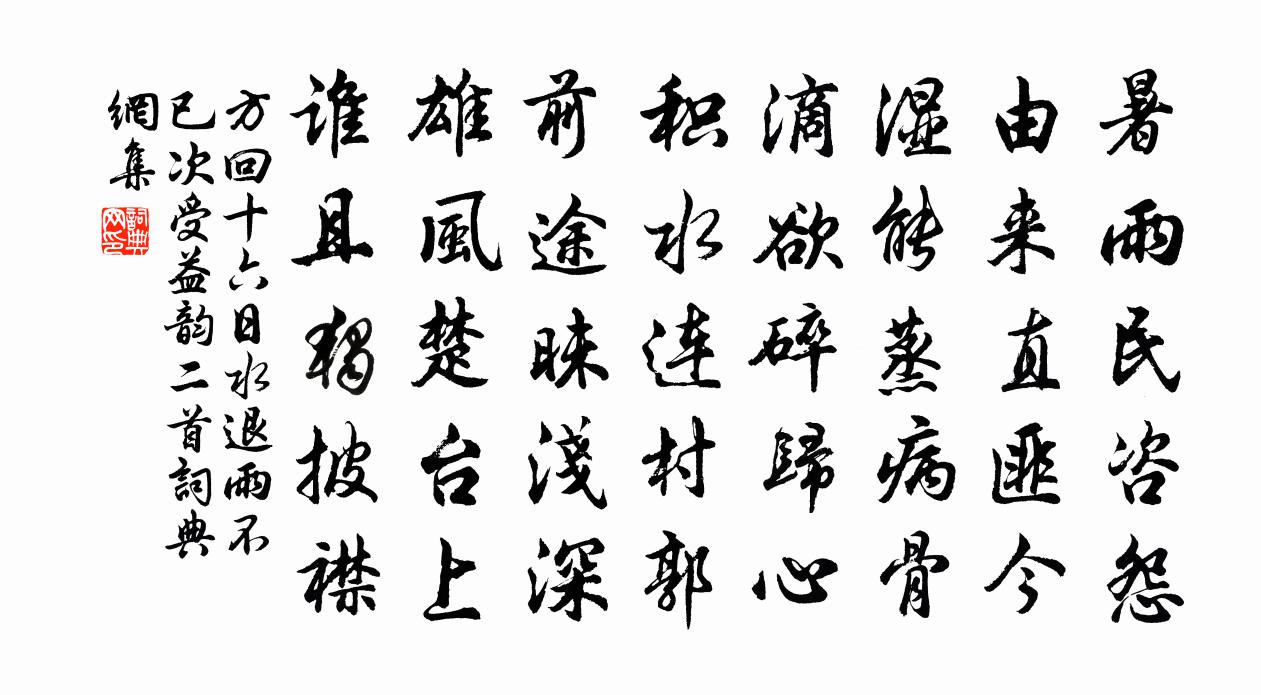 暑雨民咨怨
由来直匪今
濕能蒸病骨
滴欲碎歸心
积水连村郭
前途昧淺深
雄風楚台上
谁且獨披襟
方回十六日水退雨不
已次受益韵二首詞典
網集
詞典网印